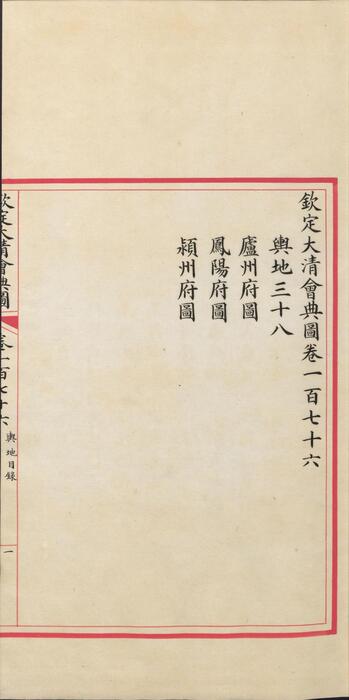 欽定大清會典圖卷一百七十六
輿地三十八
廬州府圖
鳳陽府圖
潁州府圖
欽定大清會典圖
卷一百七十六
輿地目錄
一